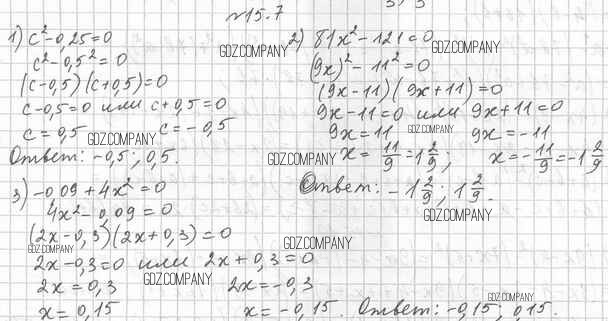 №15.7
1) c²-0,25=0
c²-0,5²=0
(c-0,5)(c+0,5)=0
c-0,5=0 или c+0,5=0
c=0,5 c=-0,5
Ответ: -0,5; 0,5.
2) 81x²-121=0
(9x)²-11²=0
(9x-11)(9x+11)=0
9x-11=0 или 9x+11=0
9x=11 9x=-11
x=11/9=1 2/9; x=-11/9=-1 2/9
Ответ: -1 2/9; 1 2/9.
3) -0,09+4x²=0
4x²-0,09=0
(2x-0,3)(2x+0,3)=0
2x-0,3=0 или 2x+0,3=0
2x=0,3 2x=-0,3
x=0,15 x=-0,15. Ответ: -0,15; 0,15.
GDZ.COMPANY
GDZ.COMPANY
GDZ.COMPANY
GDZ.COMPANY
GDZ.COMPANY
GDZ.COMPANY
GDZ.COMPANY
GDZ.COMPANY
GDZ.COMPANY
GDZ.COMPANY